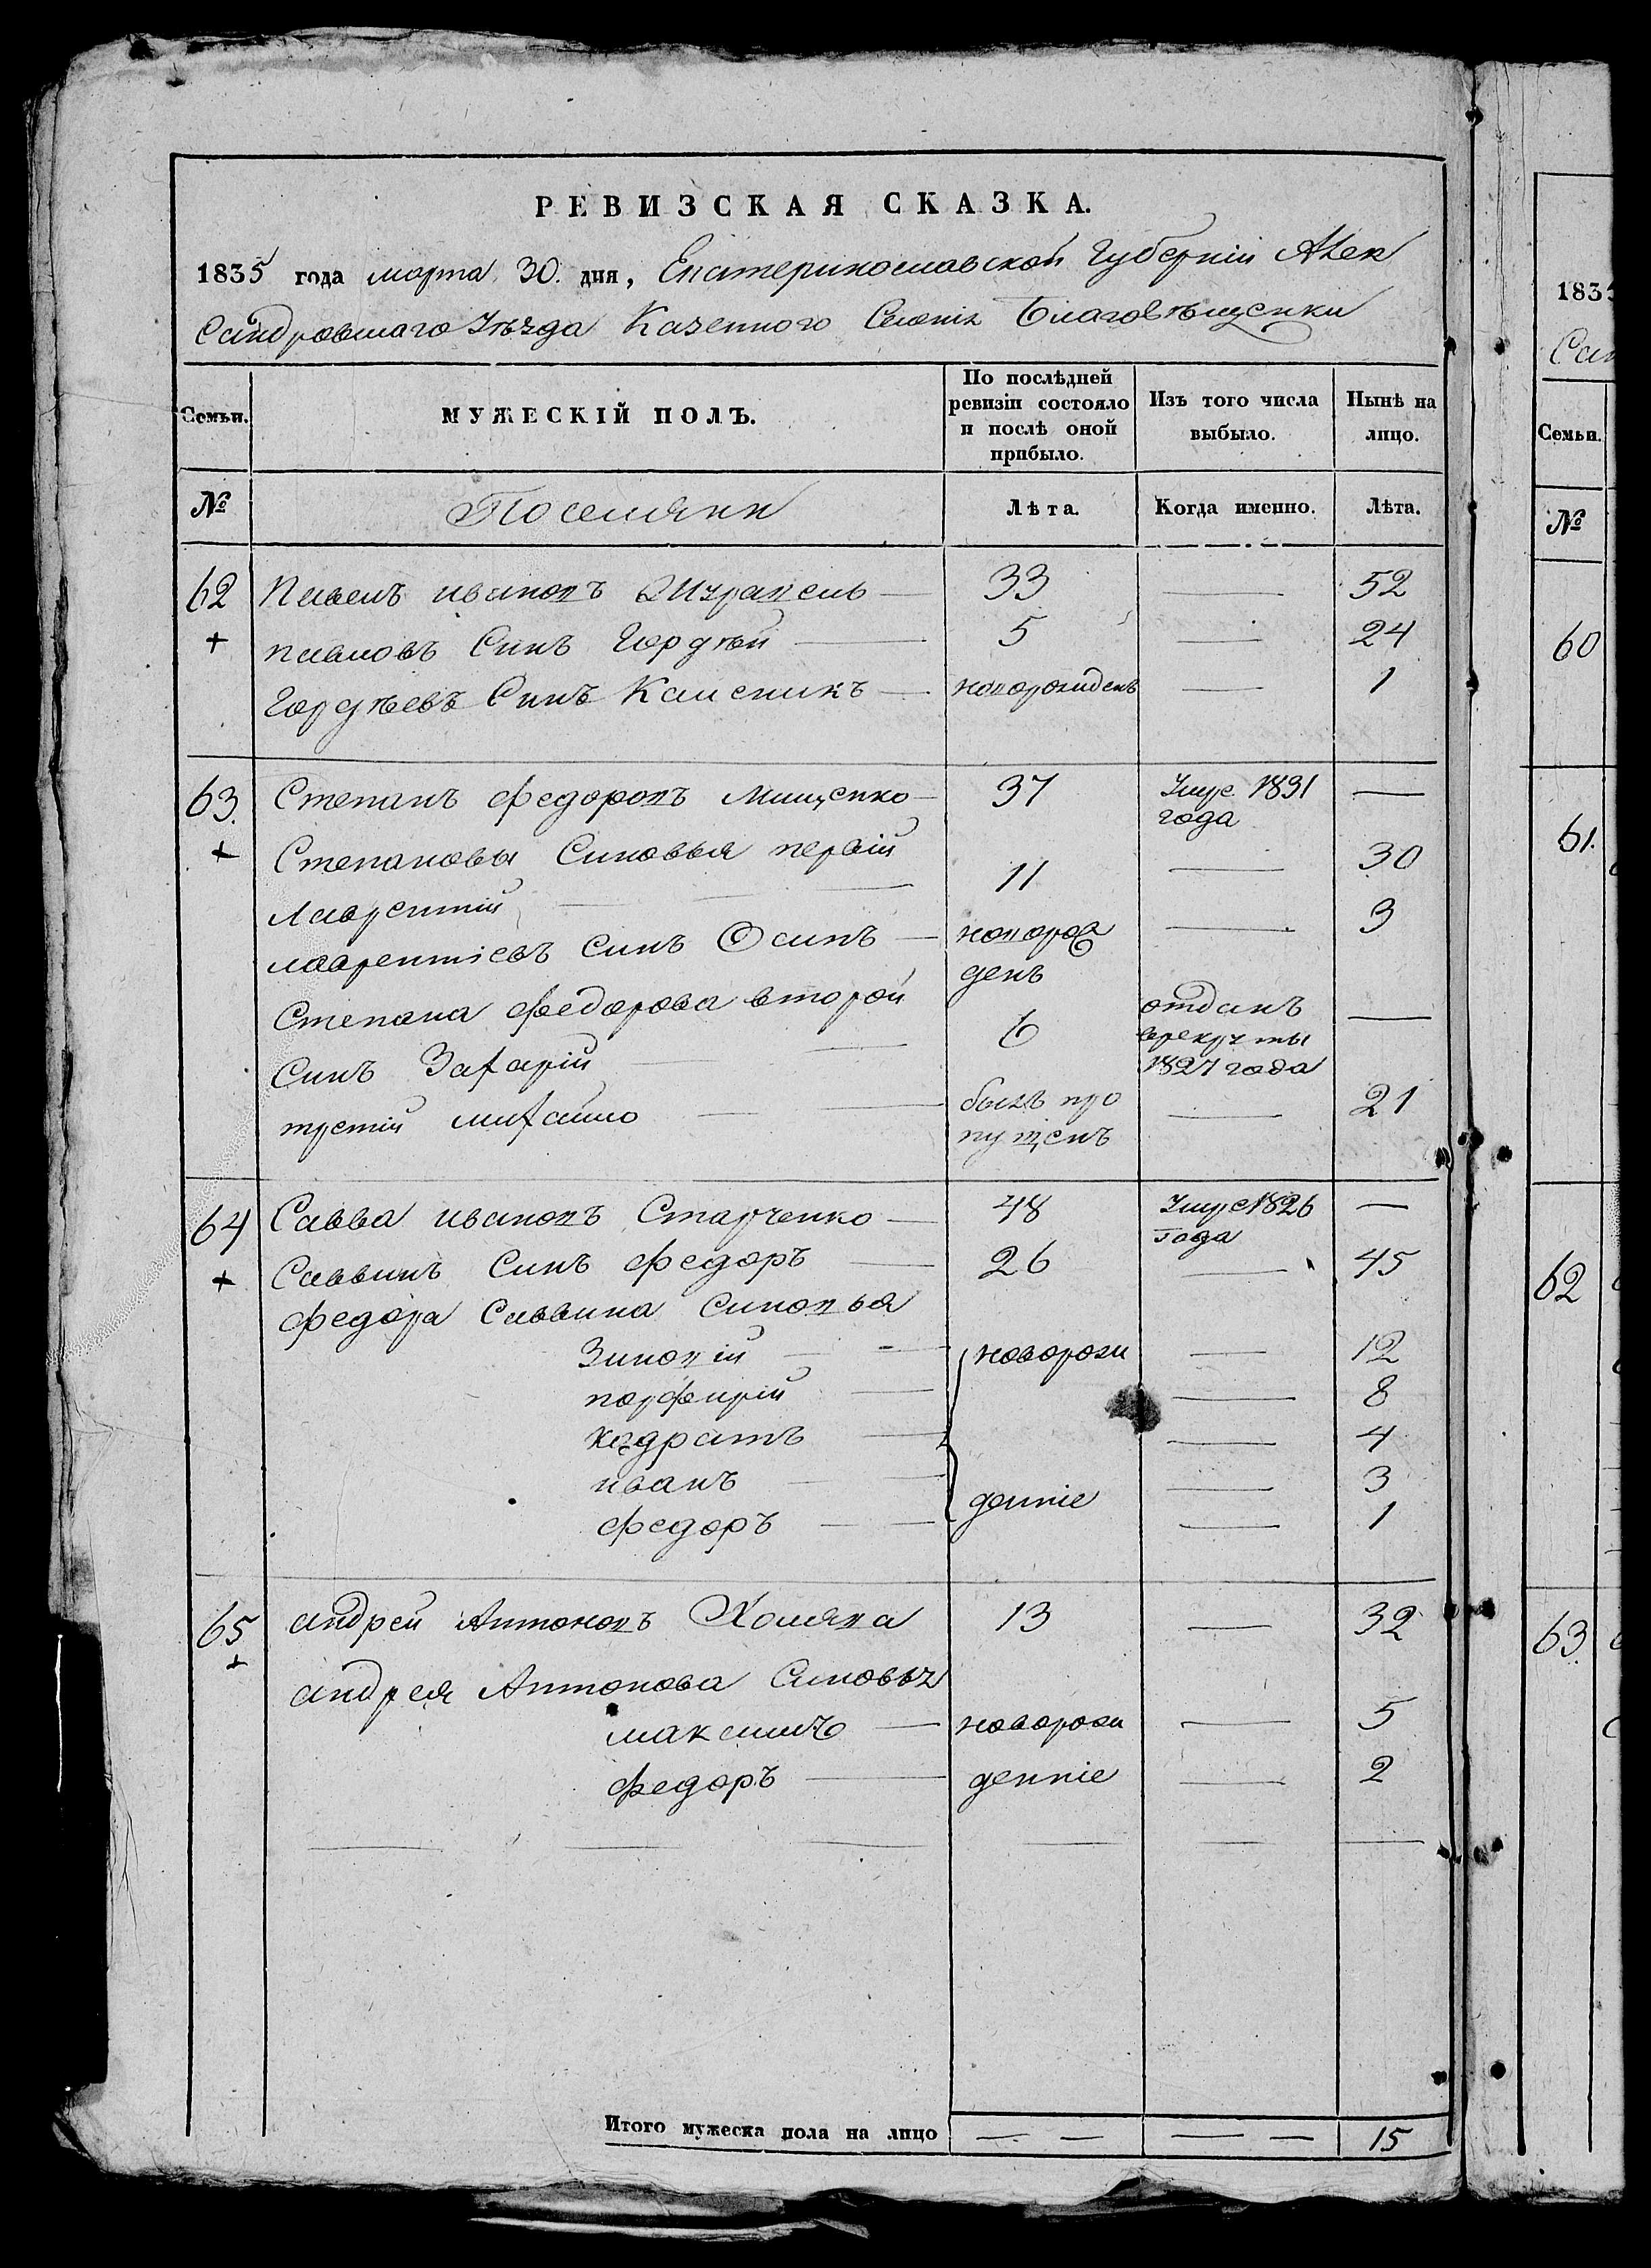 РЕВИЗСКАЯ СКАЗКА.
1835 года марта 30. дня, Екатеринославской Губерніи Алек
Сандровскаго Уѣзда Казенного Селенія Благовѣщенки
Семьи. МУЖЕСКІЙ ПОЛЪ. По послѣдней ревизіи состояло и послѣ оной прибыло. Изъ того числа выбыло. Нынѣ на лицо.
№ Поселяни Лѣта. Когда именно. Лѣта.
62 Павелъ ивановъ — 33 — 52
+ павловъ Синъ Гордѣй — 5 — 24
Гордѣевъ Синъ Каленикъ — новорожденъ — 1
63. Степанъ федоровъ Мищенко — 37 Умре 1831 года —
+ Степановы Синовья первій
Лаврентій — 11 — 30
лаврентіевъ синъ Осипъ — новорож денъ — 3
Степана федорова второй
Синъ Захарій — 6 отданъ врекруты 1827 года —
третій михайло — билъ про пущенъ — 21
64 Савва ивановъ Старченко — 48 Умре 1826 года —
+ Саввинъ Синъ федоръ — 26 — 45
федора Саввина Синовья
Зиновій — новорож — 12
порфирій — — 8
кодратъ — — 4
иванъ — — 3
федоръ — денніе — 1
65 андрей Антоновъ Холява 13 — 32
+ андрея Антонова Синовья
максимъ — новорож — 5
федоръ — денніе — 2
Итого мужеска пола на лицо — — — — 15
1835
Сан
Семьи.
№
60
61.
62
63.